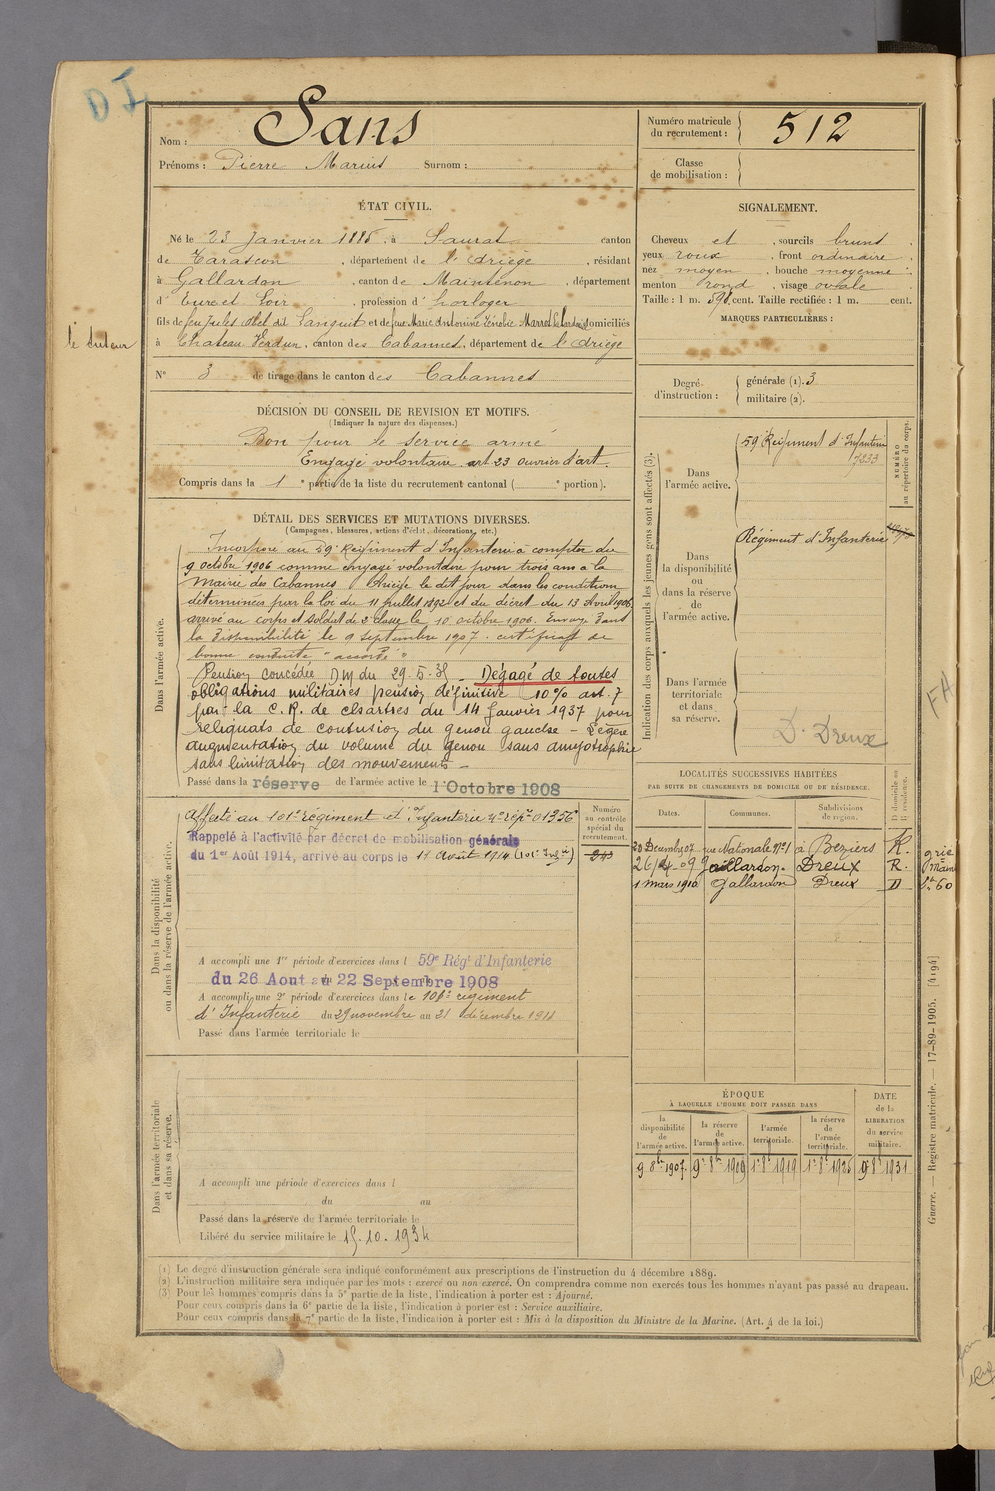 Nom : Sans
Prénoms : Pierre Marius Surnom :
Numéro matricule du recrutement : 512
Classe de mobilisation :
ÉTAT CIVIL.
Né le 23 Janvier 1886, à Saurat canton
de Tarascon, département de l'Ariège, résidant
à Gallardon, canton de Maintenon, département
d'Eure et Loir, profession d'horloger
fils de feu Jules Abel dit Sanguit et de feue Marie Antonine Zénobie Marrot domiciliés
le tuteur
à Chateau Verdun, canton des Cabannes, département de l'Ariège
N° 3 de tirage dans le canton des Cabannes
SIGNALEMENT.
Cheveux et, sourcils bruns
yeux roux, front ordinaire,
nez moyen, bouche moyenne;
menton rond, visage ovale
Taille : 1 m. 59 cent. Taille rectifiée : 1 m. cent.
MARQUES PARTICULIÈRES :
Degré d'instruction : générale (1). 3
militaire (2).
DÉCISION DU CONSEIL DE REVISION ET MOTIFS.
(Indiquer la nature des dispenses.)
Bon pour le service armé
Engagé volontaire art. 23 ouvrier d'art.
Compris dans la 1e partie de la liste du recrutement cantonal ( e portion).
DÉTAIL DES SERVICES ET MUTATIONS DIVERSES.
(Campagnes, blessures, actions d'éclat, décorations, etc.)
Dans l'armée active.
Incorporé au 59e Régiment d'Infanterie à compter du
9 octobre 1906 comme engagé volontaire pour trois ans à la
Mairie des Cabannes Ariège le dit jour dans les conditions
déterminées par la loi du 11 juillet 1892 et du décret du 13 Avril 1906.
arrivé au corps et soldat de 2e classe le 10 octobre 1906. Envoyé dans
la disponibilité le 9 septembre 1907. certificat de
bonne conduite "accordé"
Pension concédée DM du 29.5.35 - Dégagé de toutes
obligations militaires pension définitive 10% art. 7
par la C.R. de Chartres du 14 Janvier 1937 pour
reliquats de contusion du genou gauche - Légère
augmentation du volume du genou sans amyotrophie
sans limitation des mouvements -
Passé dans la réserve de l'armée active le 1 Octobre 1908
Dans la disponibilité ou dans la réserve de l'armée active.
Affecté au 101e Régiment d'Infanterie n° rép. 01356
Rappelé à l'activité par décret de mobilisation générale
du 1er Août 1914, arrivé au corps le 11 Août 1914 (101e Infie)
Numéro au contrôle spécial du recrutement.
A accompli une 1re période d'exercices dans l 59e Régt d'Infanterie
du 26 Aout au 22 Septembre 1908
A accompli une 2e période d'exercices dans le 101e régiment
d'Infanterie du 29 novembre au 21 décembre 1911
Passé dans l'armée territoriale le
Dans l'armée territoriale et dans sa réserve.
A accompli une période d'exercices dans l
du au
Passé dans la réserve de l'armée territoriale le
Libéré du service militaire le 15.10.1934
Indication des corps auxquels les jeunes gens sont affectés (3).
NUMÉRO au répertoire du corps.
Dans l'armée active.
59e Régiment d'Infanterie
7233
Dans la disponibilité ou dans la réserve de l'armée active.
Régiment d'Infanterie
Dans l'armée territoriale et dans sa réserve.
D. Dreux
FM
LOCALITÉS SUCCESSIVES HABITÉES
PAR SUITE DE CHANGEMENTS DE DOMICILE OU DE RÉSIDENCE.
Dates. Communes. Subdivisions de région. D domicile ou R résidence.
20 Décembre 07 rue Nationale N°1 à Béziers R.
26/4-09 Gaillardon. Dreux R.
1 mars 1910 Gallardon Dreux D
ÉPOQUE
À LAQUELLE L'HOMME DOIT PASSER DANS
DATE de la LIBÉRATION du service militaire.
la disponibilité de l'armée active. la réserve de l'armée active. l'armée territoriale. la réserve de l'armée territoriale.
9 8bre 1907. 9 8bre 1909 1er 8bre 1919 1er 8bre 1926 9 8bre 1931
Guerre. — Registre matricule. — 17-89-1905. [4194]
(1) Le degré d'instruction générale sera indiqué conformément aux prescriptions de l'instruction du 4 décembre 1889.
(2) L'instruction militaire sera indiquée par les mots : exercé ou non exercé. On comprendra comme non exercés tous les hommes n'ayant pas passé au drapeau.
(3) Pour les hommes compris dans la 5e partie de la liste, l'indication à porter est : Ajourné.
Pour ceux compris dans la 6e partie de la liste, l'indication à porter est : Service auxiliaire.
Pour ceux compris dans la 7e partie de la liste, l'indication à porter est : Mis à la disposition du Ministre de la Marine. (Art. 4 de la loi.)